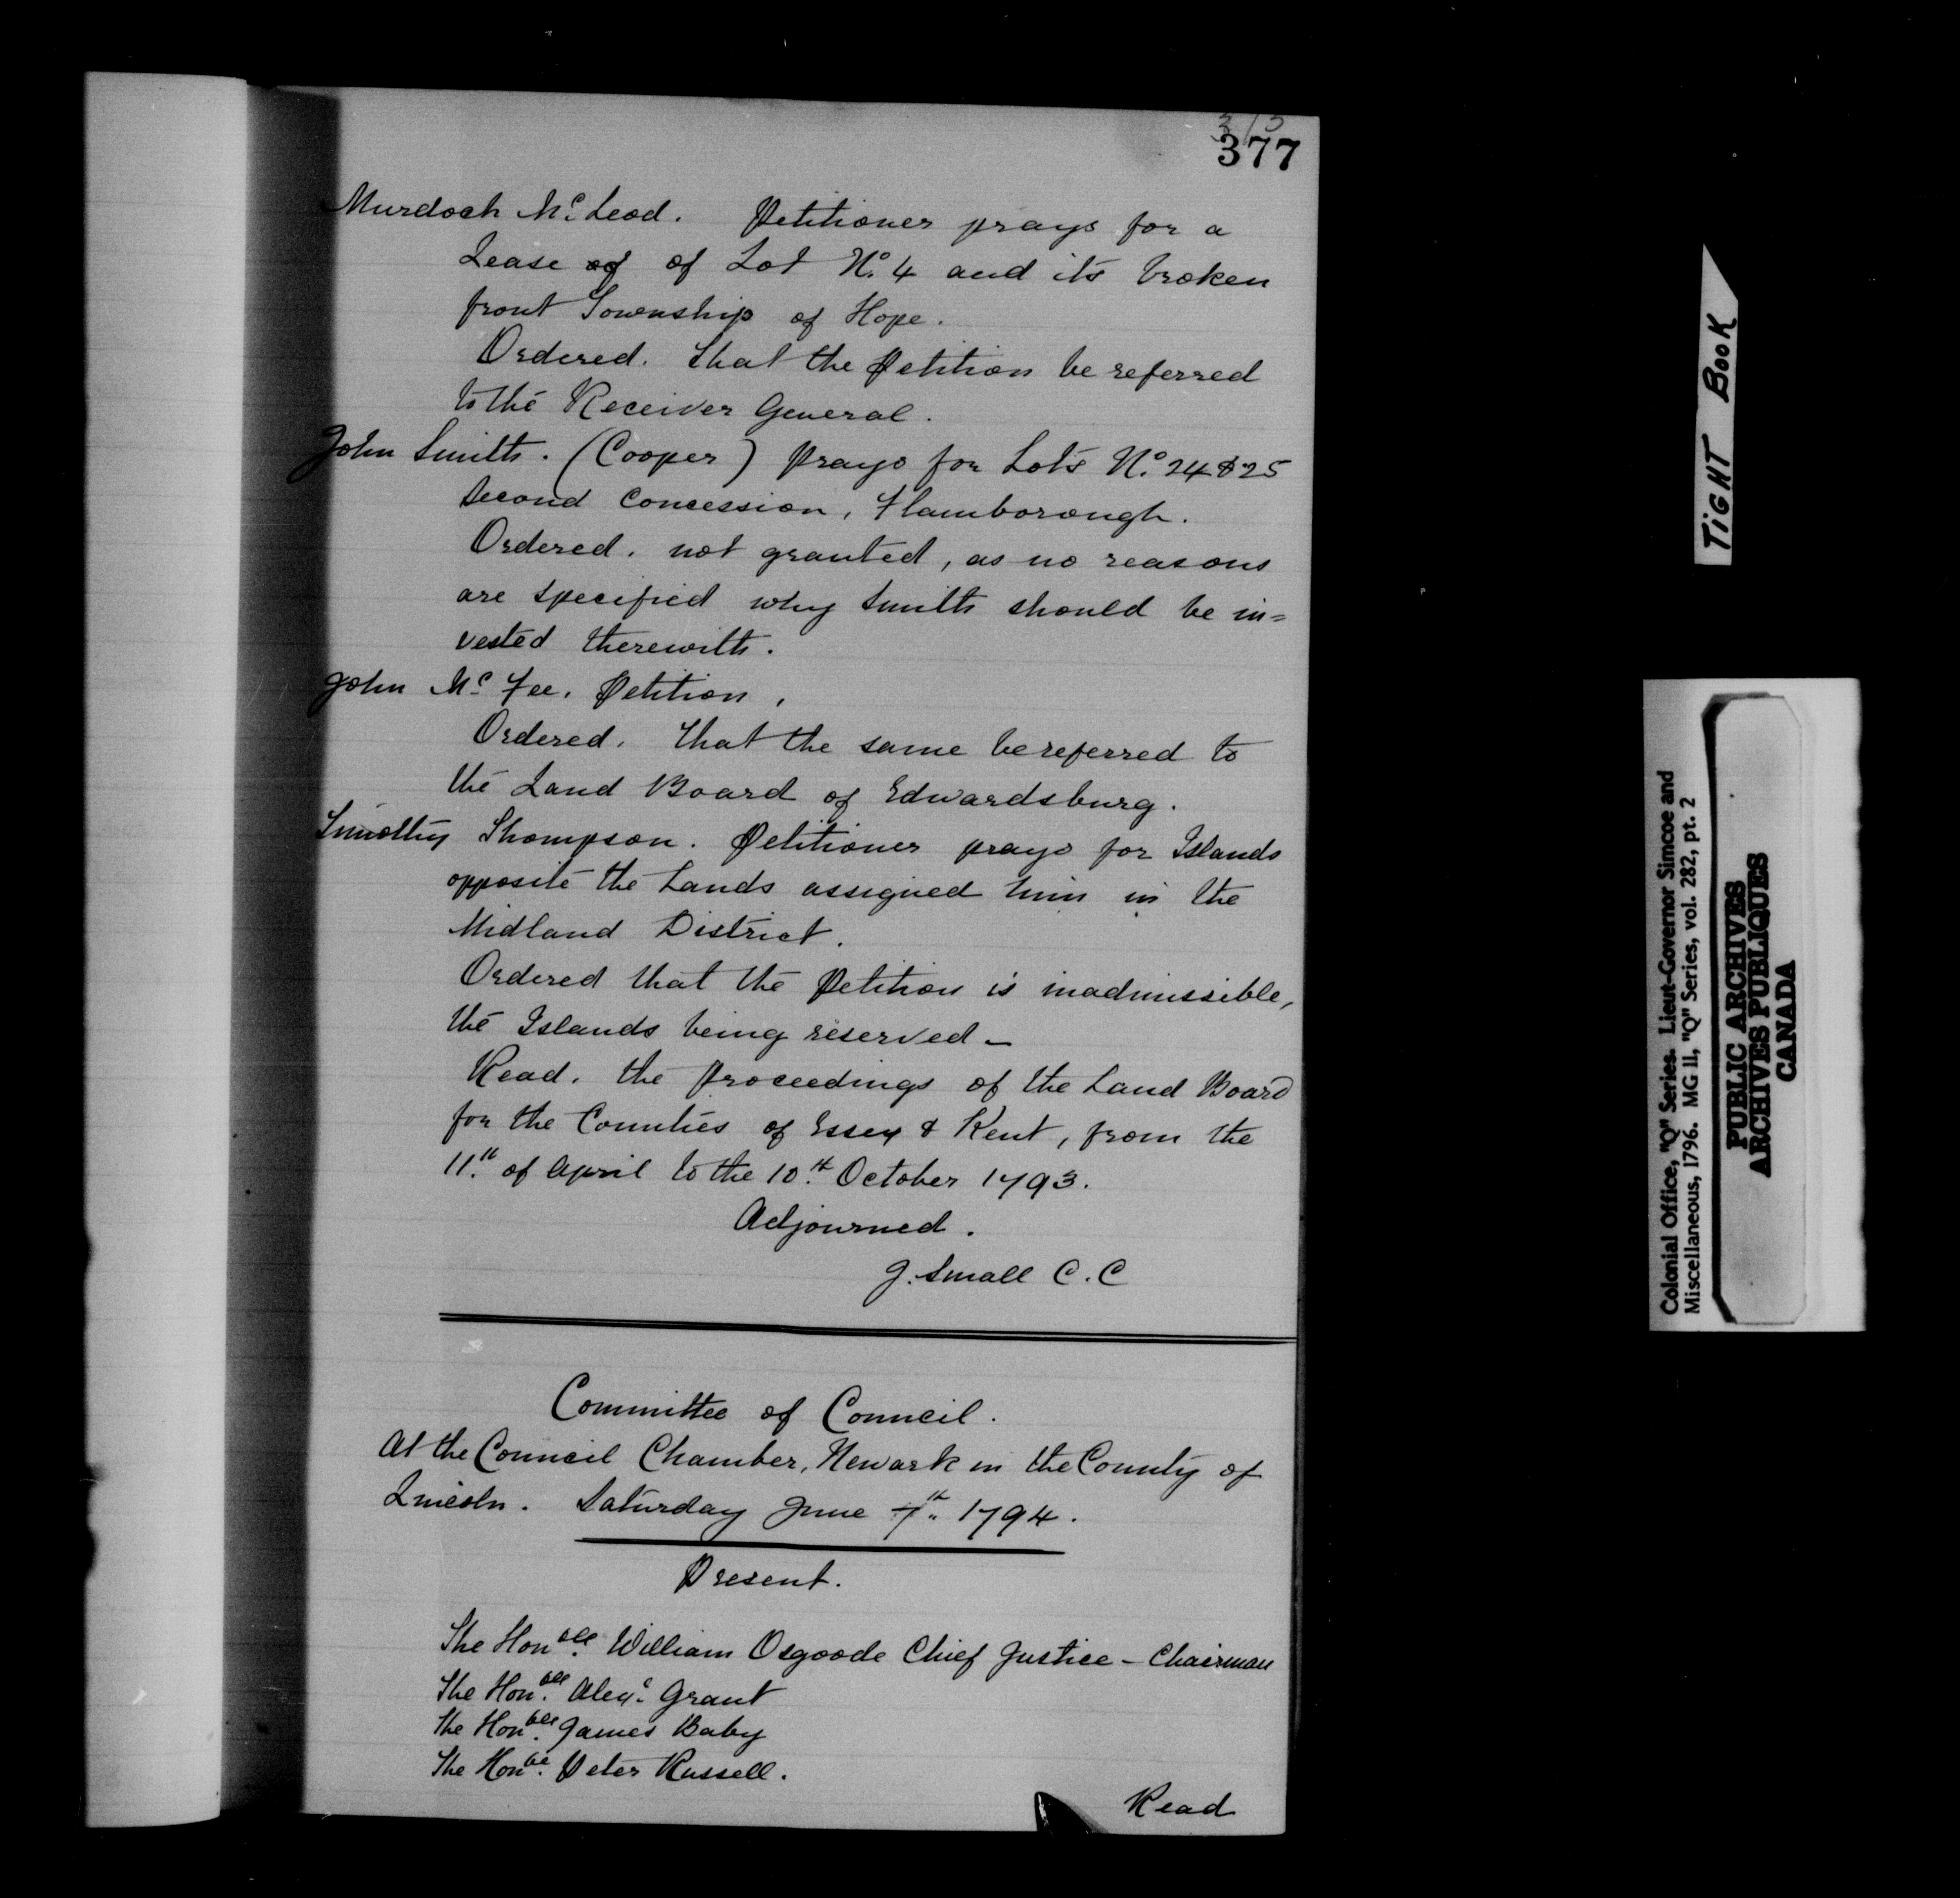 377
Murdoch Mc Leod. Petitioner prays for a
Lease of of Lot No. 4 and its broken
front Township of Hope.
Ordered. that the Petition be referred
to the Receiver General.
John Smith. (Cooper) prays for Lots No. 24 & 25
second Concession, Flamborough.
Ordered. not granted, as no reasons
are specified why Smith should be in=
vested therewith.
John Mc Fee. Petition,
Ordered. that the same be referred to
the Land Board of Edwardsburg.
Timothy Thompson. Petitioner prays for Islands
opposite the Lands assigned him in the
Midland District.
Ordered that the Petition is inadmissible,
the Islands being reserved -
Read. the proceedings of the Land Board
for the Counties of Essex & Kent, from the
11th. of April to the 10th. October 1793.
Adjourned.
J. Small C. C
Committee of Council.
At the Council Chamber, Newark in the County of
Lincoln. Saturday June 7th. 1794.
Present.
The Honble. William Osgoode Chief Justice - Chairman
The Honble. Alexr. Grant
The Honble. James Baby
The Honble. Peter Russell.
Read
TIGHT BOOK
Colonial Office, "Q" Series. Lieut-Governor Simcoe and
Miscellaneous, 1796. MG 11, "Q" Series, vol. 282, pt. 2
PUBLIC ARCHIVES
ARCHIVES PUBLIQUES
CANADA